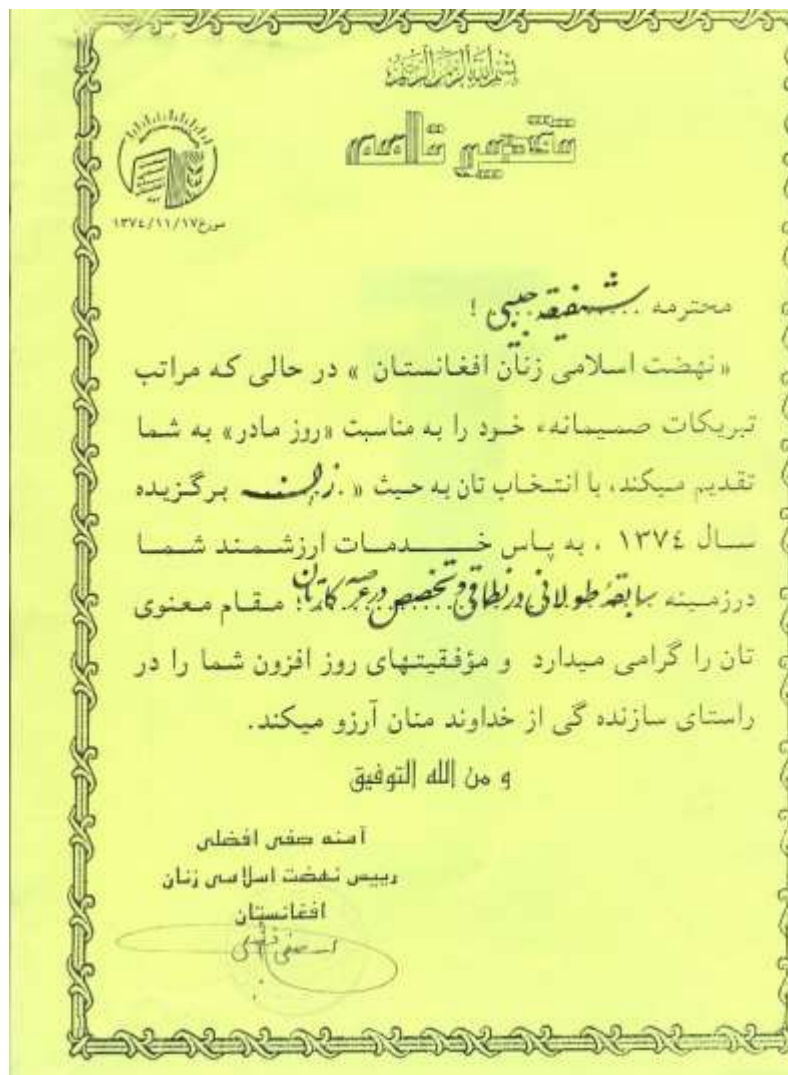 بسم الله الرحمن الرحیم
تقدیر نامه
مورخ ۱۳۷٤/۱۱/۱۷
محترمه شفیقه حبیبی !
«نهضت اسلامی زنان افغانستان » در حالی که مراتب
تبریکات صمیمانهء خود را به مناسبت «روز مادر» به شما
تقدیم میکند، با انتخاب تان به حیث « برگزیده
سال ۱۳۷٤ ، به پاس خدمات ارزشمند شما
درزمینه سابقهٔ طولانی در نطاقی و تخصص در عرصه کار تان ؛ مقام معنوی
تان را گرامی میدارد و مؤفقیتهای روز افزون شما را در
راستای سازنده گی از خداوند منان آرزو میکند.
و من الله التوفیق
آمنه صفی افضلی
رییس نهضت اسلامی زنان
افغانستان